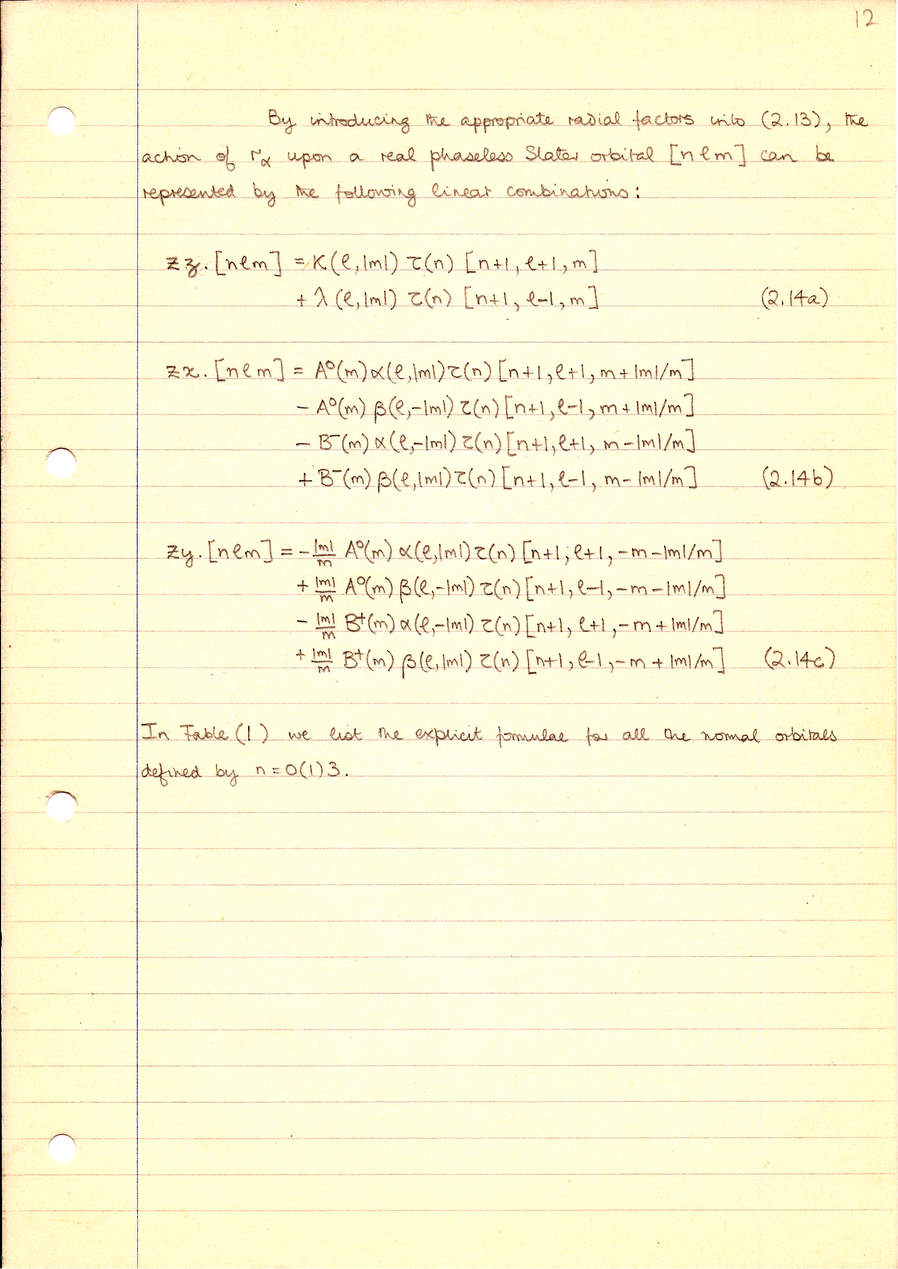 12
By introducing the appropriate radial factors into (2.13), the
action of rα upon a real phaseless Slater orbital [nℓm] can be
represented by the following linear combinations:
Zz.[nℓm] = K(ℓ,|m|) τ(n) [n+1, ℓ+1, m]
+ λ(ℓ,|m|) τ(n) [n+1, ℓ-1, m] (2.14a)
Zx.[nℓm] = A⁰(m) α(ℓ,|m|) τ(n) [n+1, ℓ+1, m+|m|/m]
- A⁰(m) β(ℓ,-|m|) τ(n) [n+1, ℓ-1, m+|m|/m]
- B⁻(m) α(ℓ,-|m|) τ(n) [n+1, ℓ+1, m-|m|/m]
+ B⁻(m) β(ℓ,|m|) τ(n) [n+1, ℓ-1, m-|m|/m] (2.14b)
Zy.[nℓm] = - |m|/m A⁰(m) α(ℓ,|m|) τ(n) [n+1, ℓ+1, -m-|m|/m]
+ |m|/m A⁰(m) β(ℓ,-|m|) τ(n) [n+1, ℓ-1, -m-|m|/m]
- |m|/m B⁺(m) α(ℓ,-|m|) τ(n) [n+1, ℓ+1, -m+|m|/m]
+ |m|/m B⁺(m) β(ℓ,|m|) τ(n) [n+1, ℓ-1, -m+|m|/m] (2.14c)
In Table (1) we list the explicit formulae for all the normal orbitals
defined by n=0(1)3.